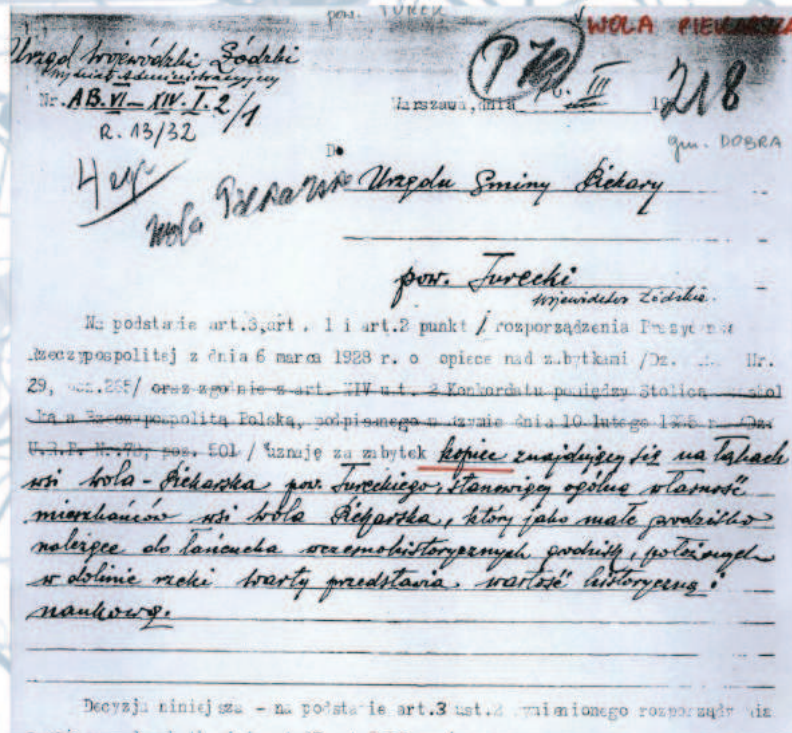 pow. TUREK
WOLA PIEKARSKA
Urząd Wojewódzki Łódzki
Wydział Administracyjny
Nr. AB.VI-XIV.I.2/1
R. 13/32
Warszawa, dnia III 19
218
gm. DOBRA
Do
Urzędu Gminy Piekary
Wola Piekarska
pow. Turecki
województwo Łódzkie.
Na podstawie art.3, art. 1 i art.2 punkt / rozporządzenia Prezydenta
Rzeczypospolitej z dnia 6 marca 1928 r. o opiece nad zabytkami /Dz. Nr.
29, poz.265/ oraz zgodnie z art. XIV u.t. 2 Konkordatu pomiędzy Stolicą
a Rzecząpospolitą Polską, podpisanego w Rzymie dnia 10 lutego 1925 r. /Dz.
U.R.P. Nr. 72, poz. 501 / uznaję za zabytek kopiec znajdujący się na łąkach
wsi Wola-Piekarska pow. Tureckiego, stanowiący ogólną własność
mieszkańców wsi Wola Piekarska, który jako małe grodzisko
należące do łańcucha wczesnohistorycznych grodzisk, położonych
w dolinie rzeki Warty przedstawia wartość historyczną i
naukową.
Decyzja niniejsza - na podstawie art.3 ust.2 wymienionego rozporządz